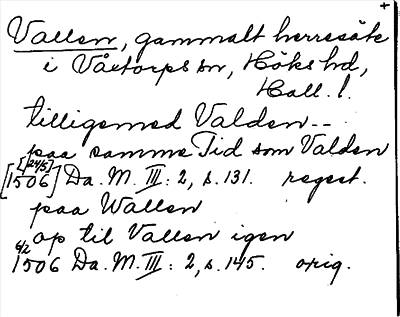 +
Vallen, gammalt herresäte
i Våxtorps sn, Höks hd,
Hall. l.
tilligemed Valden--
paa samme Tid som Valden
[[24/5] 1506] Da. M. III: 2, s. 131. regest.
paa Wallen
op til Vallen igen
6/2 1506 Da. M. III: 2, s. 145. orig.